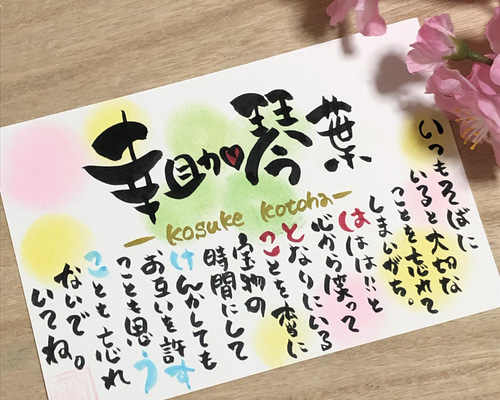 幸助♥琴葉
— kosuke kotoha —
いつもそばに
いると大切な
ことを忘れて
しまいがち。
ははは!!と
心から笑って
となりにいる
ことを に
宝物の
時間にして
けんかしても
お互いを許す
ことも思う
ことも忘れ
ないで
いてね。